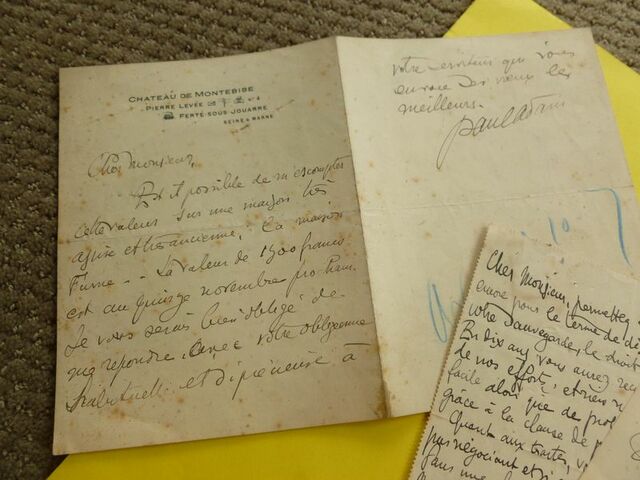 CHATEAU DE MONTEBISE
PIERRE LEVÉE
N° 4
FERTÉ-SOUS-JOUARRE
SEINE & MARNE
Cher Monsieur,
Est il possible de m'escompter
cette valeur sur une maison très
et très ancienne, la maison
Furne - La valeur de 1500 francs
est au quinze novembre prochain.
Je vous serais bien obligé de
me répondre avec votre obligeance
habituelle et
à
votre serviteur qui vous
envoie ses vœux les
meilleurs.
Paul Adam
10
Cher Monsieur, permettez
encore pour le terme de
votre sauvegarde, le droit
En dix ans vous aurez
de nos efforts, et rien
facile alors que de
grâce à la clause de
Quant aux traites,
pas négociant et
dans une